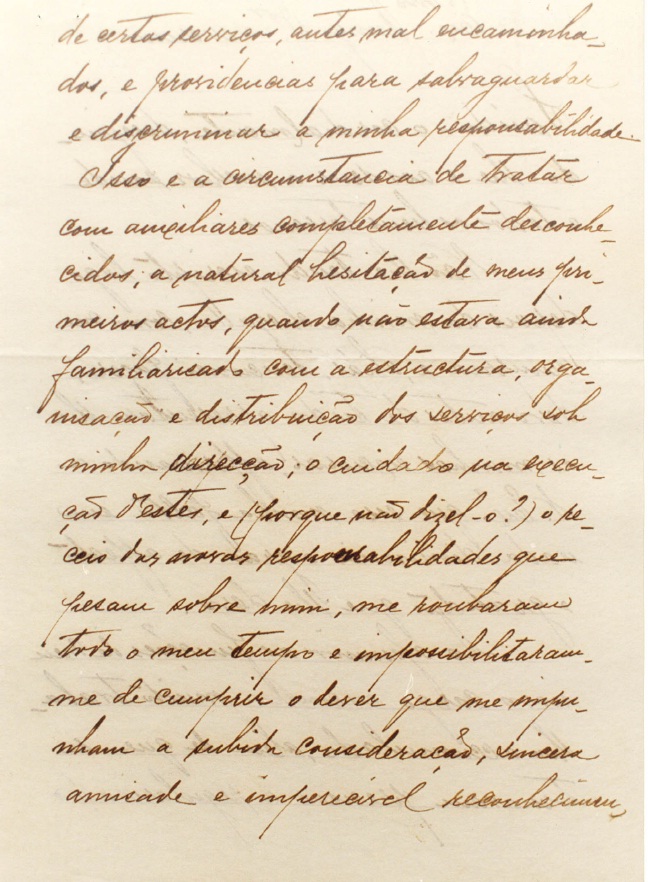 de certos serviços, antes mal encaminha-
dos, e providencias para salvaguardar
e discriminar a minha responsabilidade.
Isso e a circumstancia de tratar
com auxiliares completamente desconhe-
cidos; a natural hesitação de meus pri-
meiros actos, quando não estava ainda
familiarisado com a estructura, orga-
nisação e distribuição dos serviços sob
minha direcção; o cuidado na execu-
ção d'estes, e (porque não dizel-o?) o re-
ceio das novas responsabilidades que
pesam sobre mim, me roubaram
todo o meu tempo e impossibilitaram-
me de cumprir o dever que me impu-
nham a subida consideração, sincera
amisade e imperecivel reconhecimen-